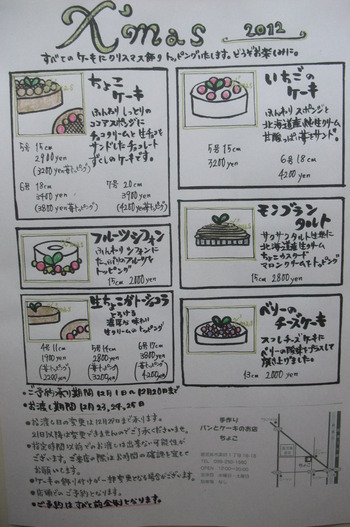 X'mas 2012
すべてのケーキにクリスマス飾りトッピングいたします。どうぞお楽しみに。
ちょこ
ケーキ
ふんわりしっとりの
ココアスポンジに
チョコクリームと生チョコを
サンドしたチョコレート
づくしのケーキです。
5号 15cm
2900yen
(3200yen苺トッピング)
6号 18cm
3400yen
(3800yen苺トッピング)
7号 20cm
3900yen
(4200yen苺トッピング)
いちごの
ケーキ
ふんわりスポンジと
北海道産純生クリーム
甘酸っぱい苺をサンド。
5号 15cm
3200yen
6号 18cm
4200yen
フルーツシフォン
ふんわりシフォン
トッピング
モンブラン
タルト
サクサクタルト生地に
北海道産生クリーム
ちょこカスタード
マロンクリームをトッピング
15cm 2800yen
生ちょこガトーショコラ
とろける
濃厚な味わい
生クリームのトッピング
4号 11cm
1900yen
苺トッピング
2200yen
5号 14cm
2800yen
苺トッピング
3200yen
6号 17cm
3800yen
苺トッピング
4200yen
ベリーの
チーズケーキ
スフレチーズケーキに
ベリーの酸味をプラスして
焼き上げました。
13cm 2000yen
・ご予約承り期間 12月1日〜12月20日まで
・お渡し期間 12月23,24,25日
・お渡し日の変更は12月20日まで承ります。
21日以降は変更できませんのでご了承くださいませ。
・指定時間以前でのお渡しは出来ない可能性が
ございます。ご来店の際はお時間の確認を定して
お願いします。
・ケーキの飾り付けが一部変更となる場合がございます。
・店頭でのご予約となります。
・ご予約はすべて前金制となります。
手作り
パンとケーキのお店
ちょこ